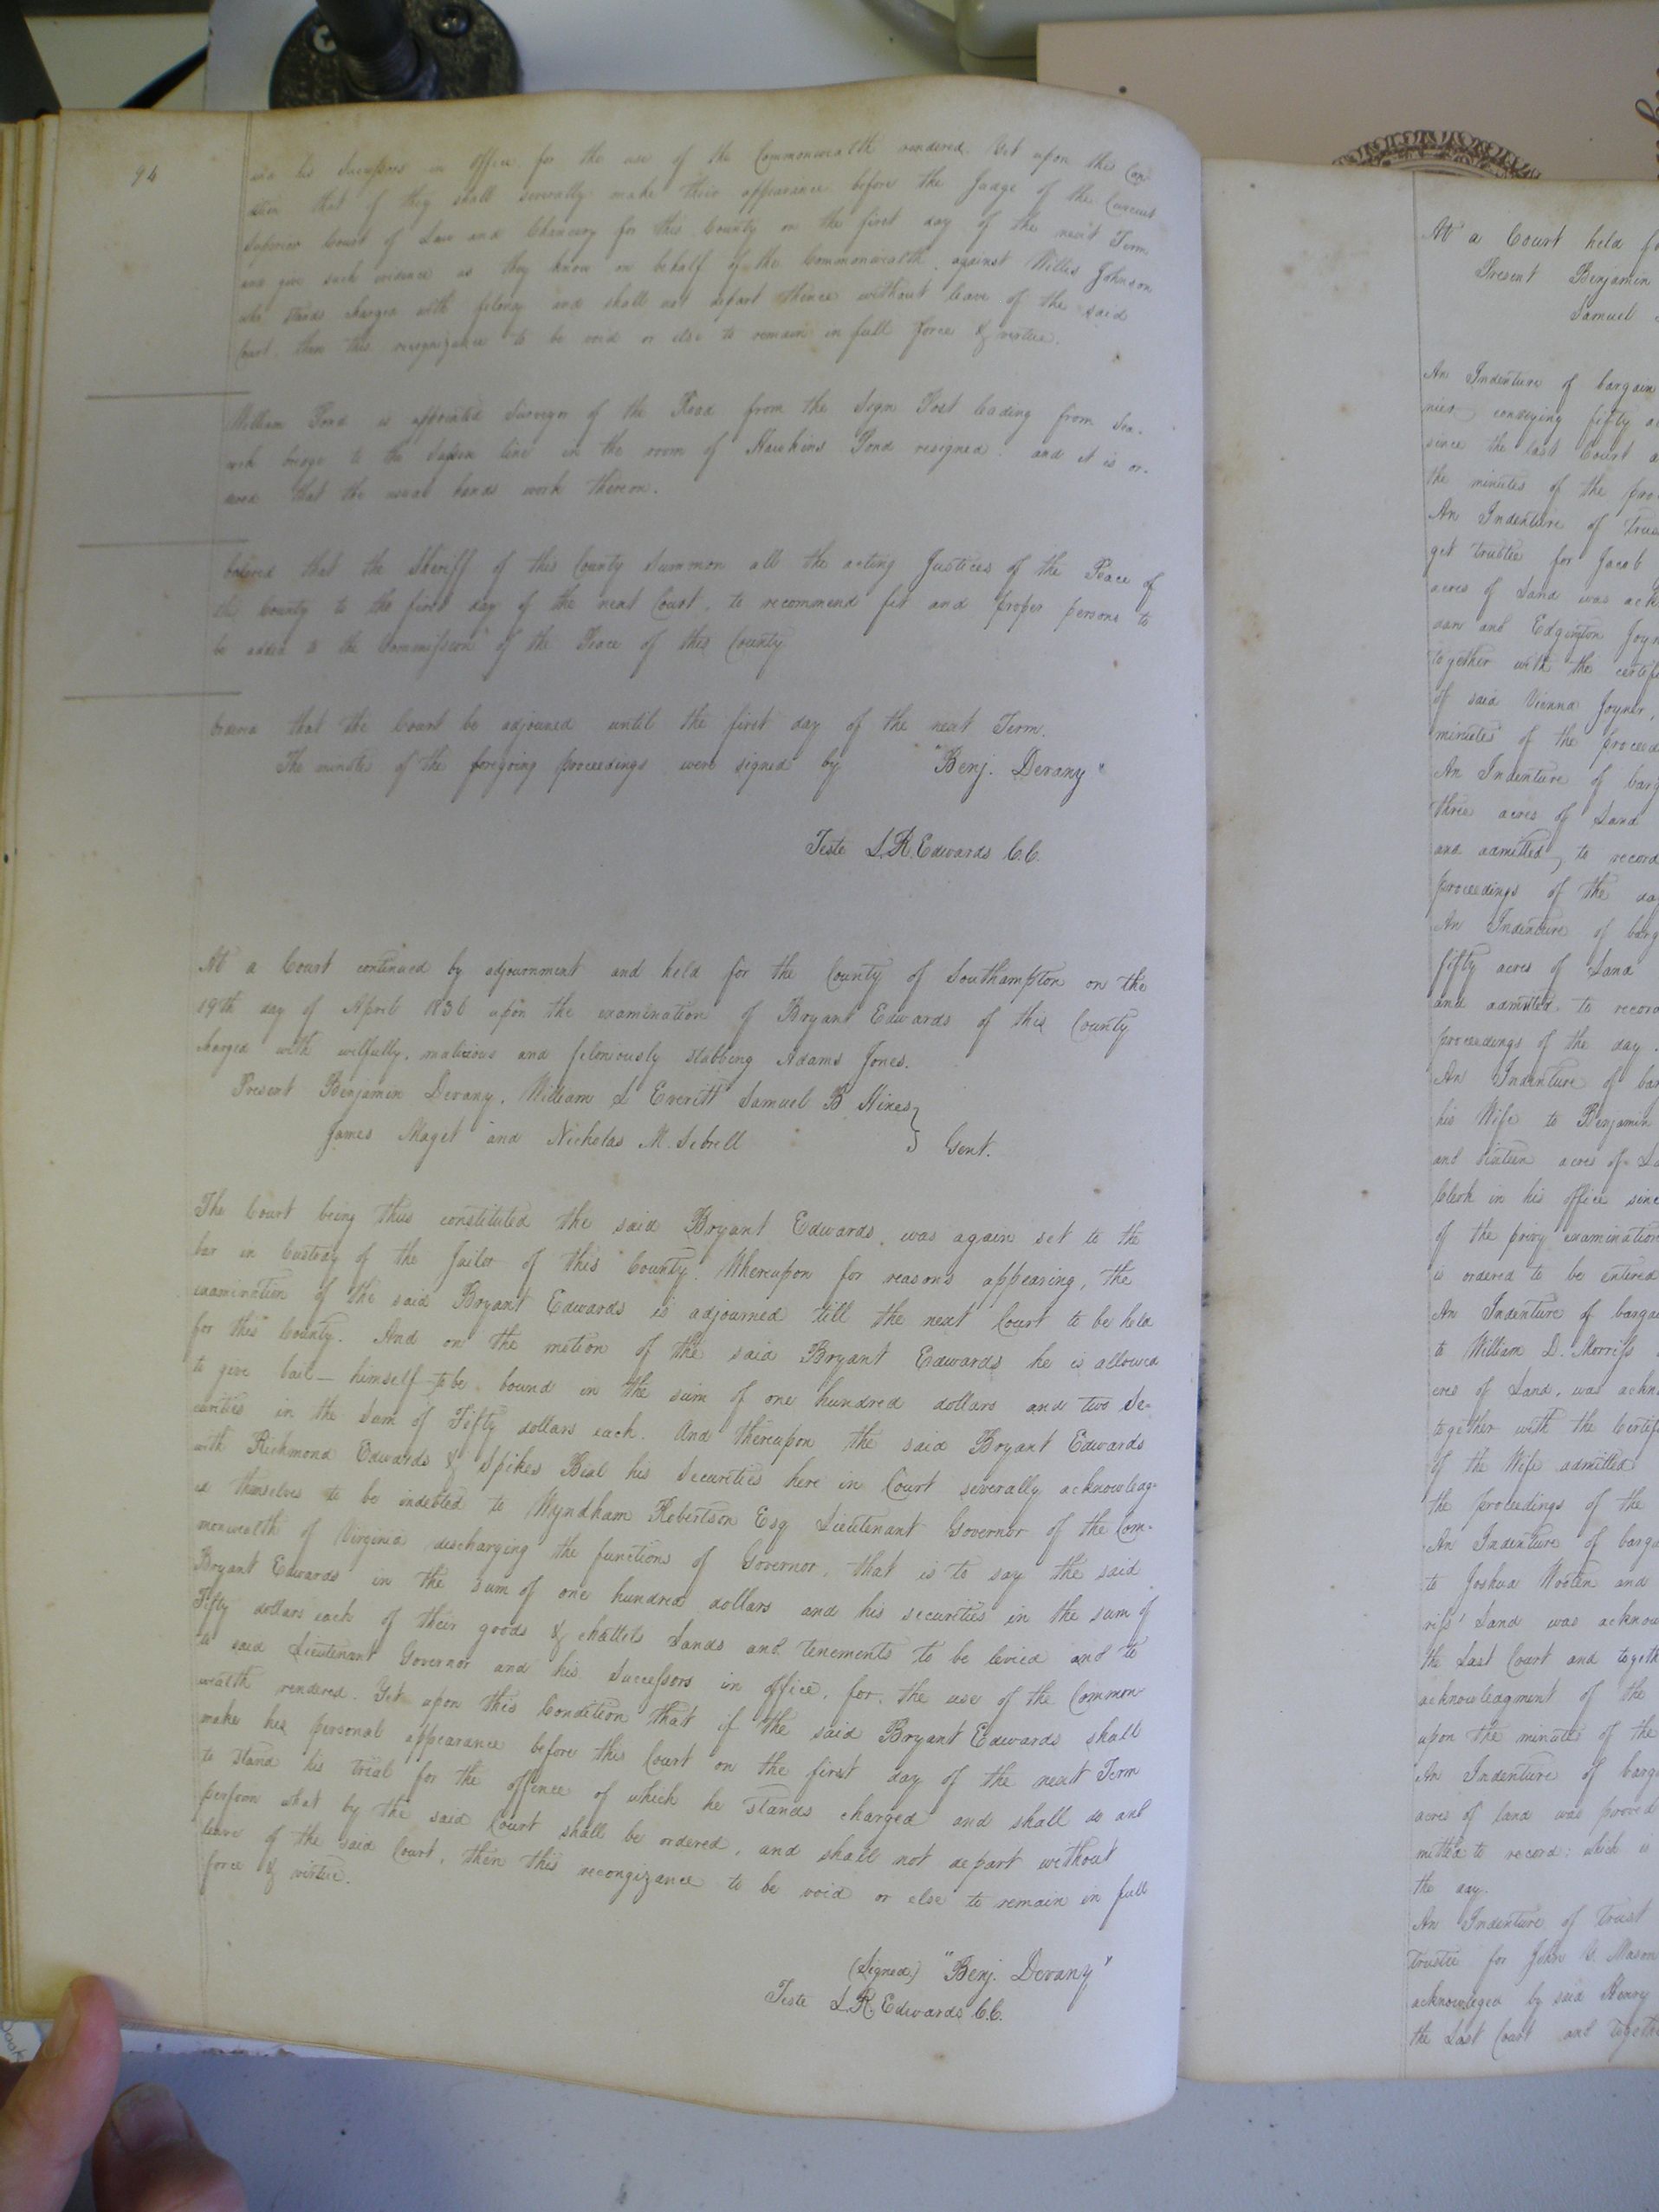 94
and his Successors in office, for the use of the Commonwealth rendered. Yet upon this Con-
dition that if they shall severally make their appearance before the Judge of the Circuit
Superior Court of Law and Chancery for this County on the first day of the next Term
and give such evidence as they know on behalf of the Commonwealth, against Willis Johnson
who stands charged with felony and shall not depart thence without leave of the said
Court, then this recognizance to be void or else to remain in full force & virtue.
William Pond is appointed Surveyor of the Road from the Sign Post leading from
bridge to the Sussex line in the room of Hawkins Pond resigned: and it is or-
dered that the usual hands work thereon.
Ordered that the Sheriff of this County Summon all the acting Justices of the Peace of
this County to the first day of the next Court, to recommend fit and proper persons to
be added to the Commission of the Peace of this County
Ordered that the Court be adjouned until the first day of the next Term.
The minutes of the foregoing proceedings were signed by "Benj. Devany"
Teste L.R. Edwards C.C.
At a Court continued by adjournment and held for the County of Southampton on the
19th day of April 1836 upon the examination of Bryant Edwards of this County
charged with wilfully, malicious and feloniously stabbing Adams Jones.
Present Benjamin Devany, William L Everitt Samuel B Hines
James Maget and Nicholas M. Sebrell } Gent.
The Court being thus constituted the said Bryant Edwards, was again set to the
bar in Custody of the Jailor of this County. Whereupon for reasons appearing, the
examination of the said Bryant Edwards is adjourned till the next Court to be held
for this County. And on the motion of the said Bryant Edwards he is allowed
to give bail — himself to be bound in the sum of one hundred dollars and two Se-
curities in the Sum of Fifty dollars each. And thereupon the said Bryant Edwards
with Richmond Edwards & Spikes Beal his Securities here in Court severally acknowledg-
ed themselves to be indebted to Wyndham Robertson Esq Lieutenant Governor of the Com-
monwealth of Virginia discharging the functions of Governor, that is to say the said
Bryant Edwards in the sum of one hundred dollars and his securities in the sum of
Fifty dollars each of their goods & chattels Lands and tenements to be levied and to
said Lieutenant Governor and his Successors in office, for the use of the Common-
wealth rendered. Yet upon this Condition that if the said Bryant Edwards shall
make his personal appearance before this Court on the first day of the next Term
to stand his trial for the offence of which he stands charged and shall do and
perform what by the said Court shall be ordered, and shall not depart without
leave of the said Court, then this recongizance to be void or else to remain in full
force & virtue.
(Signed) "Benj. Devany"
Teste L.R. Edwards C.C.
At a Court held
Present Benjamin
Samuel
An Indenture of bargain
conveying fifty
since the last Court
the minutes of the
An Indenture of
get trustee for Jacob
acres of Land was
and Edgington
together with the
of said Vienna Joyner,
minutes of the
An Indenture of
three acres of Land
and admitted to record
proceedings of the
An Indenture of
fifty acres of Land
and admitted to
proceedings of the day.
An Indenture of
his Wife to Benjamin
and sixteen acres of
Clerk in his office
of the privy examination
is ordered to be entered
An Indenture of
to William D. Morriss
of Land, was
together with the
of the Wife admitted
the proceedings of the
An Indenture of
to Joshua Wooten and
Land was
the Last Court and
acknowledgment of the
upon the minutes of the
An Indenture of
acres of land was proved
mitted to record: which is
the day.
An Indenture of Trust
trustee for John Mason
acknowledged by said Henry
the Last Court and